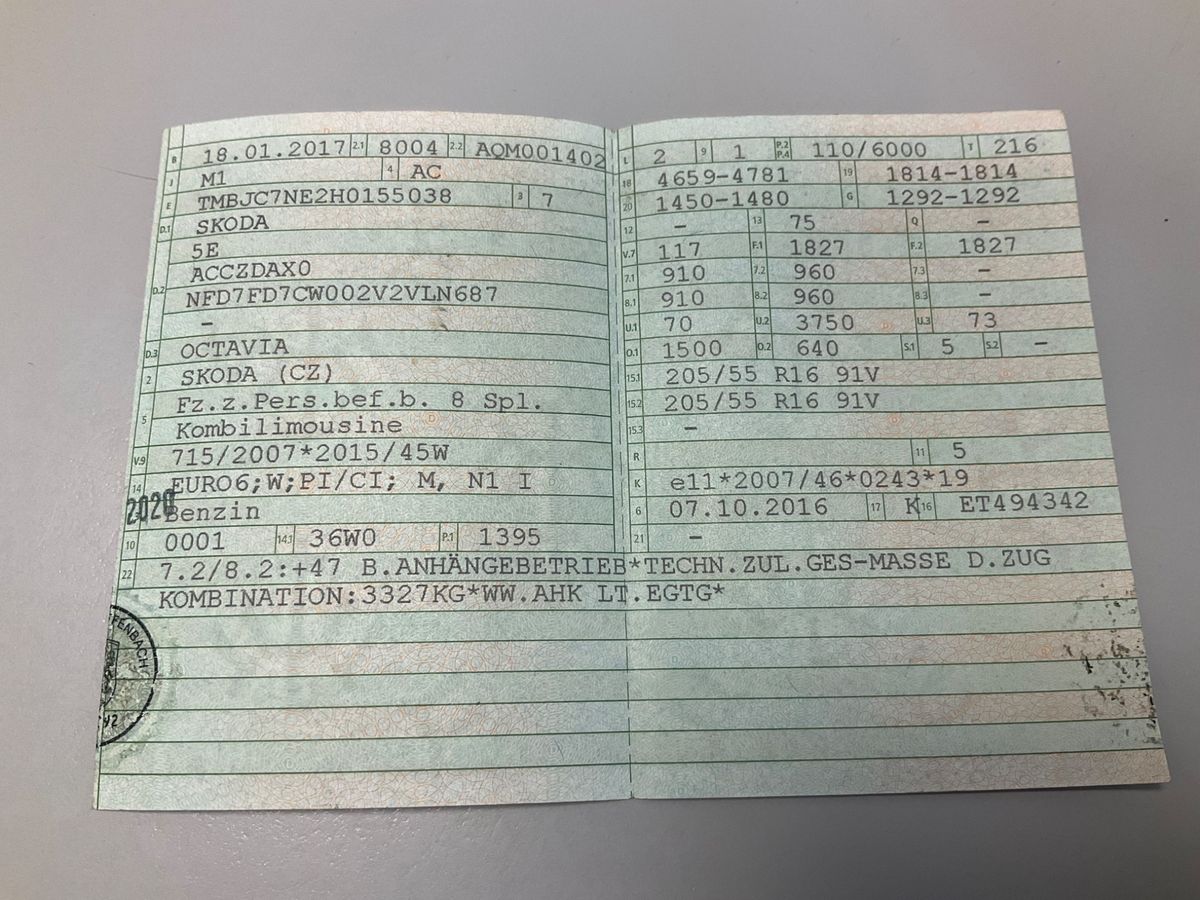 B 18.01.2017 2.1 8004 2.2 AQM001402
J M1 4 AC
E TMBJC7NE2H0155038 3 7
D.1 SKODA
5E
D.2 ACCZDAX0
NFD7FD7CW002V2VLN687
–
D.3 OCTAVIA
2 SKODA (CZ)
5 Fz.z.Pers.bef.b. 8 Spl.
Kombilimousine
V.9 715/2007*2015/45W
14 EURO6;W;PI/CI; M, N1 I
2020
Benzin
10 0001 14.1 36W0 P.1 1395
L 2 9 1 P.2 P.4 110/6000 T 216
18 4659-4781 19 1814-1814
20 1450-1480 G 1292-1292
12 – 13 75 Q –
V.7 117 F.1 1827 F.2 1827
7.1 910 7.2 960 7.3 –
8.1 910 8.2 960 8.3 –
U.1 70 U.2 3750 U.3 73
O.1 1500 O.2 640 S.1 5 S.2 –
15.1 205/55 R16 91V
15.2 205/55 R16 91V
15.3 –
R 11 5
K e11*2007/46*0243*19
6 07.10.2016 17 K 16 ET494342
21 –
22 7.2/8.2:+47 B.ANHÄNGEBETRIEB*TECHN.ZUL.GES-MASSE D.ZUG
KOMBINATION:3327KG*WW.AHK LT.EGTG*